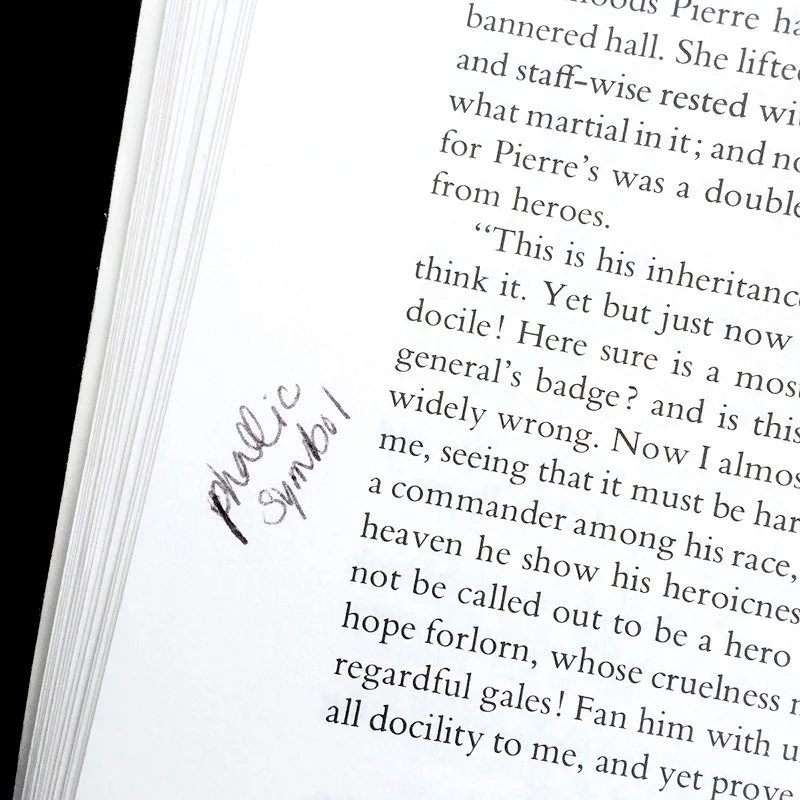 Pierre
bannered hall. She lifted
and staff-wise rested
what martial in it; and
for Pierre's was a double
from heroes.
“This is his inheritance
think it. Yet but just now
docile! Here sure is a
general's badge? and is this
widely wrong. Now I
me, seeing that it must be
a commander among his race,
heaven he show his
not be called out to be a hero
hope forlorn, whose cruelness
regardful gales! Fan him with
all docility to me, and yet prove
phallic
symbol